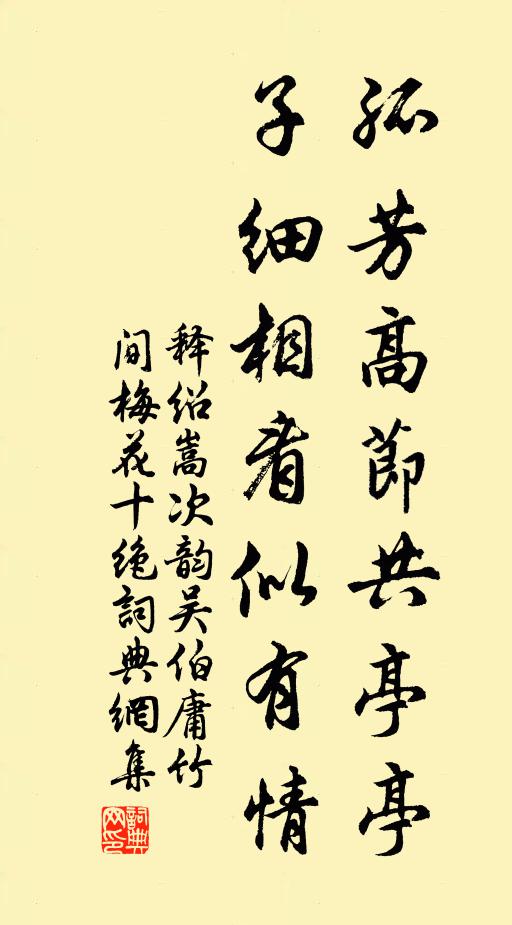 孤芳高節共亭亭
子细相看似有情
释绍嵩次韵吴伯庸竹
间梅花十绝詞典網集
詞典
网印